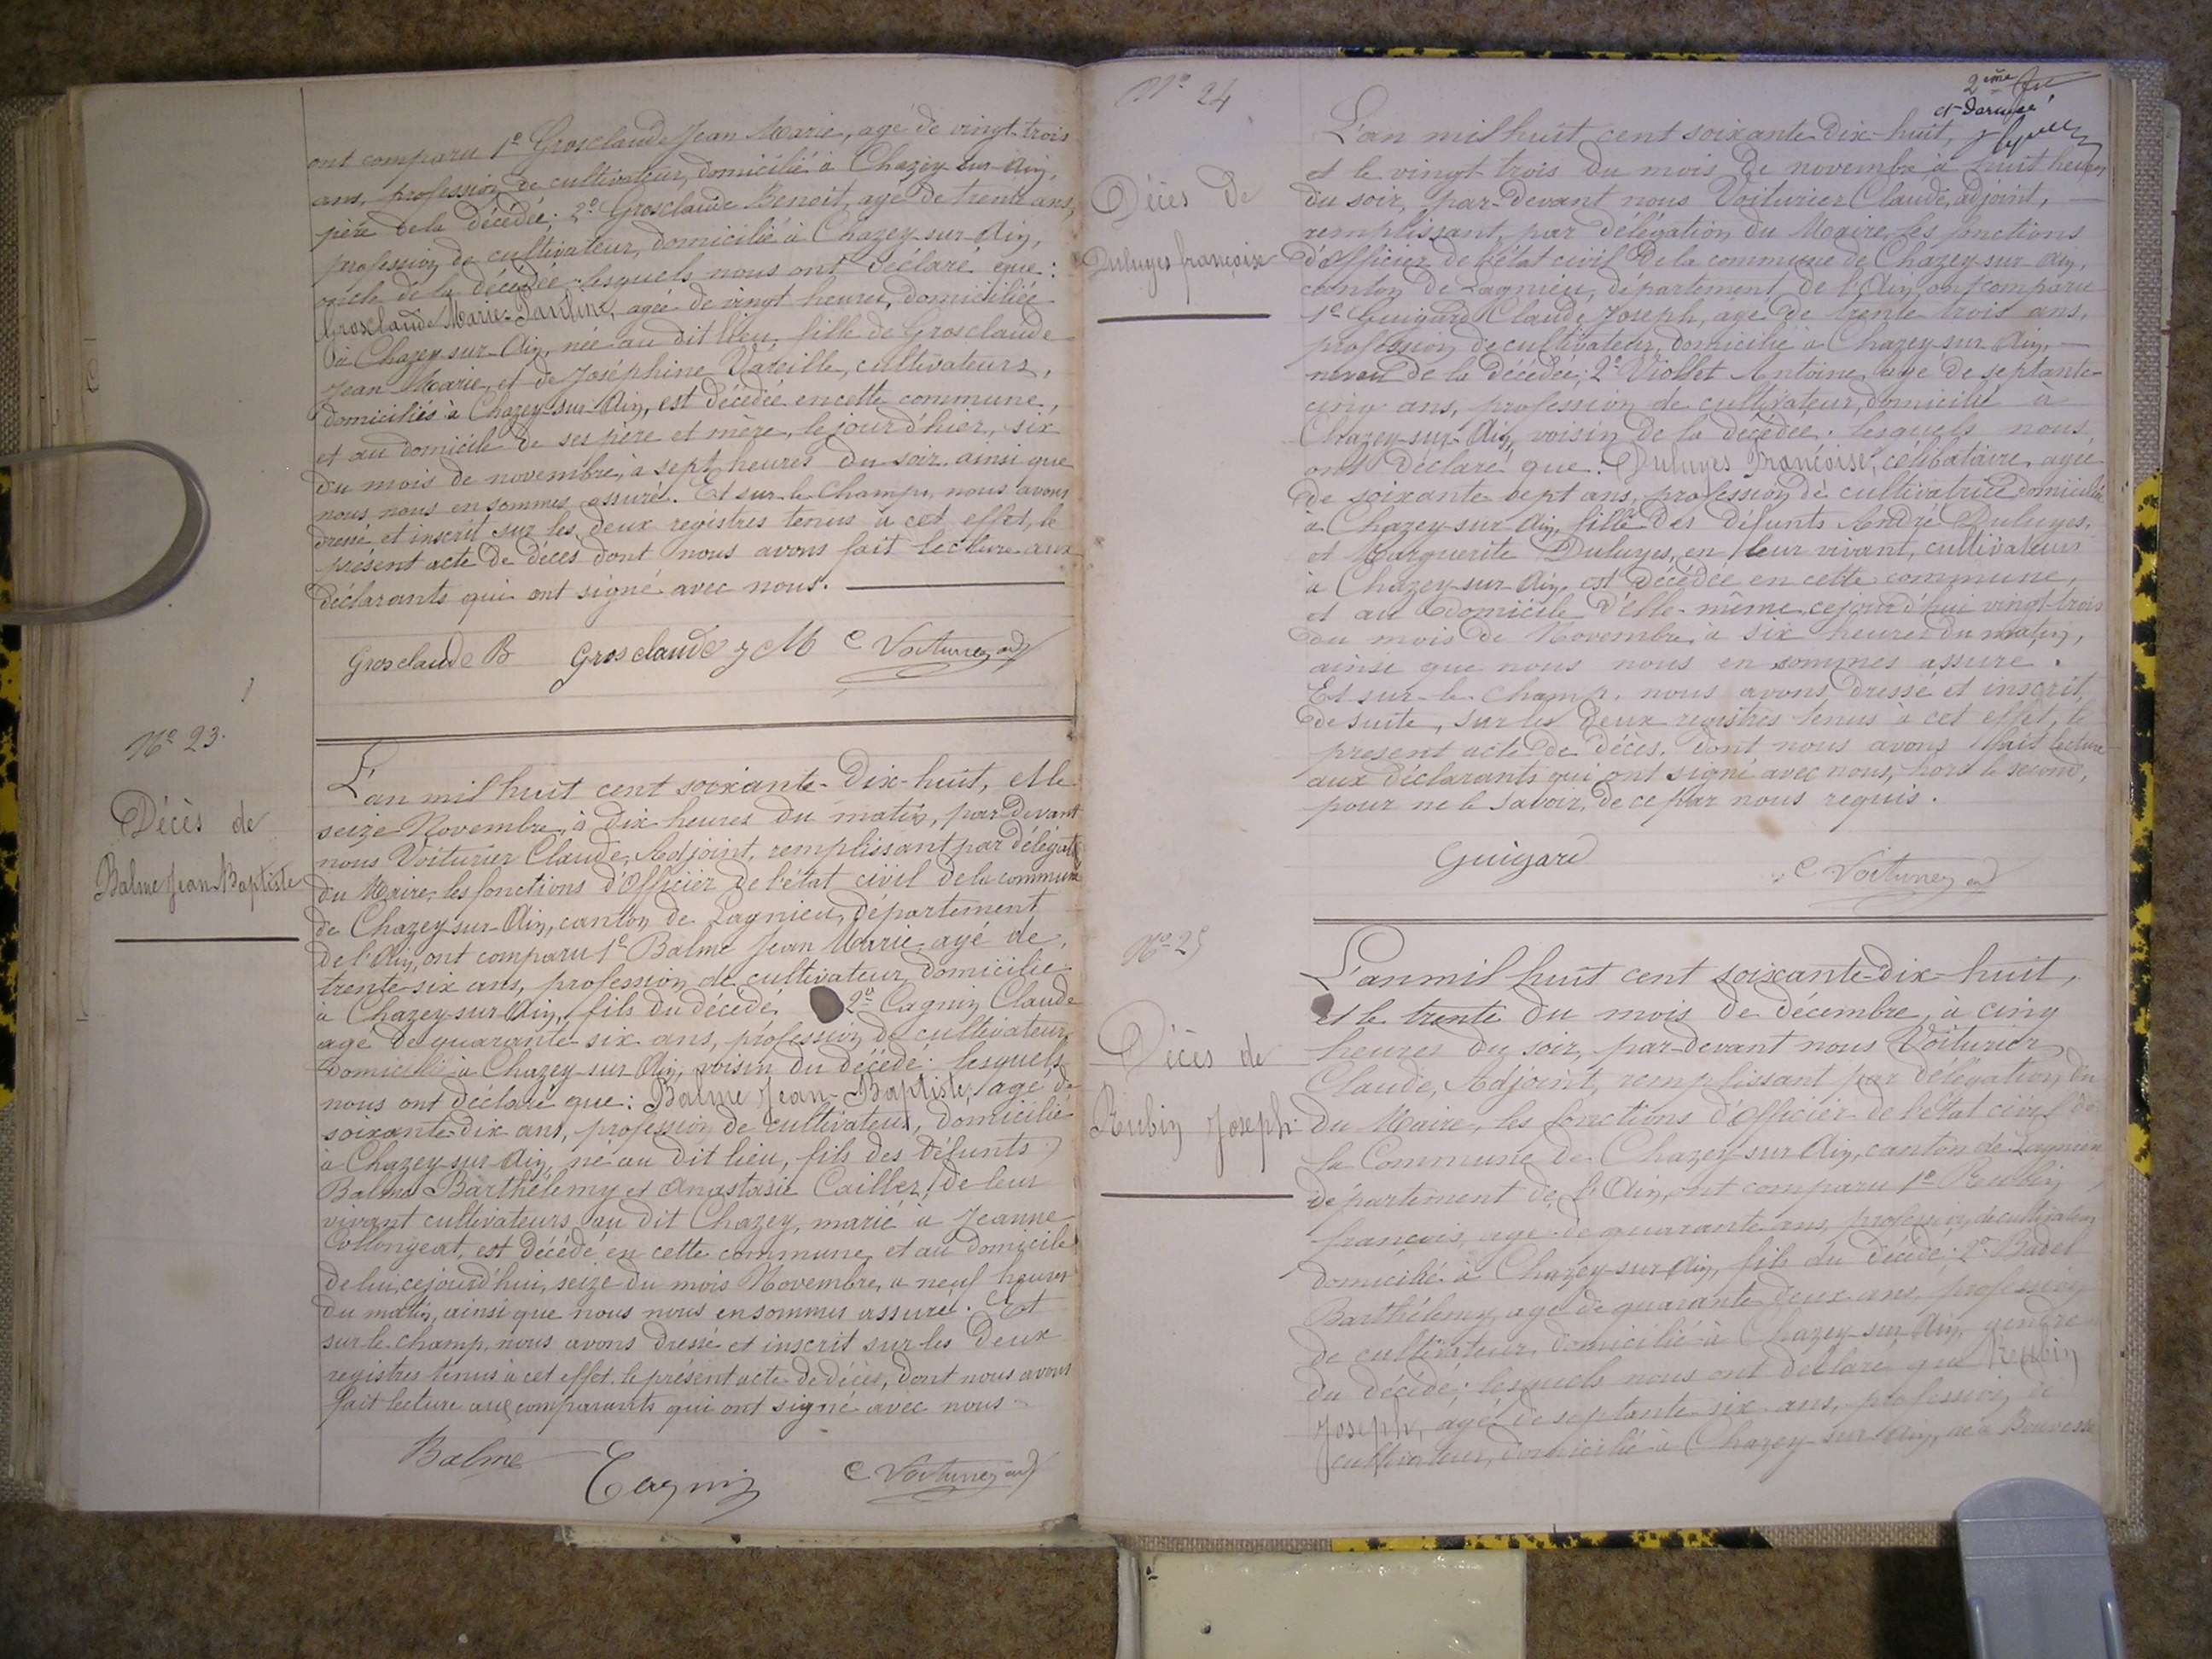 ont comparu 1º Grosclaude Jean Marie, agé de vingt-trois
ans, profession de cultivateur, domicilié à Chazey-sur-Ain,
père de la décédée; 2º Grosclaude Benoit, agé de trente ans,
profession de cultivateur, domicilié à Chazey-sur-Ain,
oncle de la décédée lesquels nous ont déclaré que:
Grosclaude Marie-Pauline, agée de vingt heures, domiciliée
à Chazey-sur-Ain, née au dit lieu, fille de Grosclaude
Jean Marie, et de Joséphine Vareille, cultivateurs,
domiciliés à Chazey-sur-Ain, est décédée en cette commune,
et au domicile de ses père et mère, le jour d'hier, six
du mois de novembre, à sept heures du soir, ainsi que
nous nous en sommes assuré. Et sur-le-champ, nous avons
dressé et inscrit sur les deux registres tenus à cet effet, le
présent acte de décès dont nous avons fait lecture aux
déclarants qui ont signé avec nous.
Grosclaude B Grosclaude J M C Voiturier adj
Nº 23.
Décès de
Balme Jean Baptiste
L'an mil huit cent soixante-dix-huit, et le
seize Novembre, à dix heures du matin, par devant
nous Voiturier Claude, Adjoint, remplissant par délégat
du Maire, les fonctions d'Officier de l'état civil de la commune
de Chazey-sur-Ain, canton de Lagnieu, département
de l'Ain, ont comparu 1º Balme Jean Marie, agé de,
trente-six ans, profession de cultivateur, domicilié
à Chazey-sur-Ain, fils du décédé, 2º Cagnin Claude
agé de quarante six ans, profession de cultivateur,
domicilié à Chazey-sur-Ain, voisin du décédé: lesquels
nous ont déclaré que: Balme Jean-Baptiste, agé de
soixante-dix ans, profession de cultivateur, domicilié
à Chazey-sur-Ain, né au dit lieu, fils des défunts
Balme Barthélemy et Anastasie de leur
vivant cultivateurs au dit Chazey, marié à Jeanne
est décédé en cette commune, et au domicile
de lui, cejourd'hui, seize du mois Novembre, à neuf heures
du matin, ainsi que nous nous en sommes assuré. Et
sur-le-champ, nous avons dressé et inscrit sur les deux
registres tenus à cet effet, le présent acte de décès, dont nous avons
fait lecture aux comparants qui ont signé avec nous.
Balme Cagnin C Voiturier adj
2eme
et dernier
Nº 24
Décès de
Duluyes françoise
L'an mil huit cent soixante-dix-huit,
et le vingt-trois du mois de novembre à huit heures
du soir, par-devant nous Voiturier Claude, adjoint,
remplissant, par délégation du Maire, les fonctions
d'Officier de l'état civil de la commune de Chazey-sur-Ain,
canton de Lagnieu, département de l'Ain, ont comparu
1º Guigard Claude Joseph, agé de trente trois ans,
profession de cultivateur, domicilié à Chazey-sur-Ain,
neveu de la décédée; 2º Viollet Antoine, agé de septante-
cinq ans, profession de cultivateur, domicilié à
Chazey-sur-Ain, voisin de la décédée. lesquels nous
ont déclaré que: Duluyes Françoise, célibataire, agée
de soixante-sept ans, profession de cultivatrice domiciliée
à Chazey-sur-Ain, fille des défunts André Duluyes,
et Marguerite Duluyes, en leur vivant, cultivateurs
à Chazey-sur-Ain, est décédée en cette commune,
et au domicile d'elle-même cejourd'hui vingt-trois
du mois de Novembre, à six heures du matin,
ainsi que nous nous en sommes assuré.
Et sur-le-champ, nous avons dressé et inscrit,
de suite, sur les deux registres tenus à cet effet, le
présent acte de décès, dont nous avons fait lecture
aux déclarants qui ont signé avec nous, hors le second,
pour ne le savoir, de ce par nous requis.
Guigard C Voiturier adj
Nº 25
Décès de
Rubin Joseph
L'an mil huit cent soixante-dix-huit,
et le trente du mois de décembre, à cinq
heures du soir, par-devant nous Voiturier
Claude, Adjoint, remplissant par délégation du
du Maire, les fonctions d'Officier de l'état civil de
la Commune de Chazey-sur-Ain, canton de Lagnieu
département de l'Ain, ont comparu 1º Rubin
françois, agé de quarante ans, profession de cultivateur
domicilié à Chazey-sur-Ain, fils du décédé; 2º Badel
Barthélemy, agé de quarante deux ans, profession
de cultivateur, domicilié à Chazey-sur-Ain, gendre
du décédé; lesquels nous ont déclaré que Rubin
Joseph, agé de septante-six ans, profession de
cultivateur, domicilié à Chazey-sur-Ain, né à Bouvesse